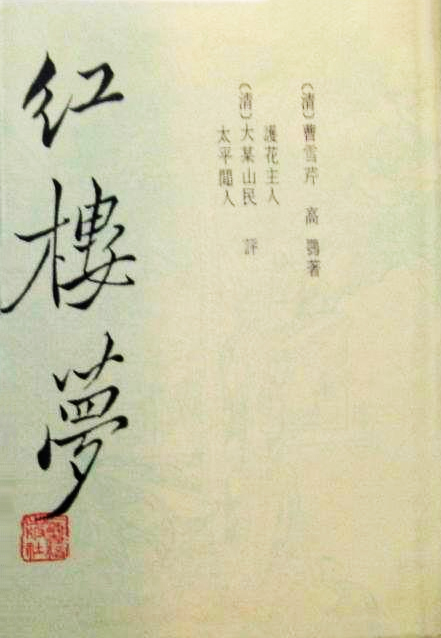 红樓夢
〔清〕曹雪芹 高鶚著
護花主人
〔清〕大某山民 評
太平閒人